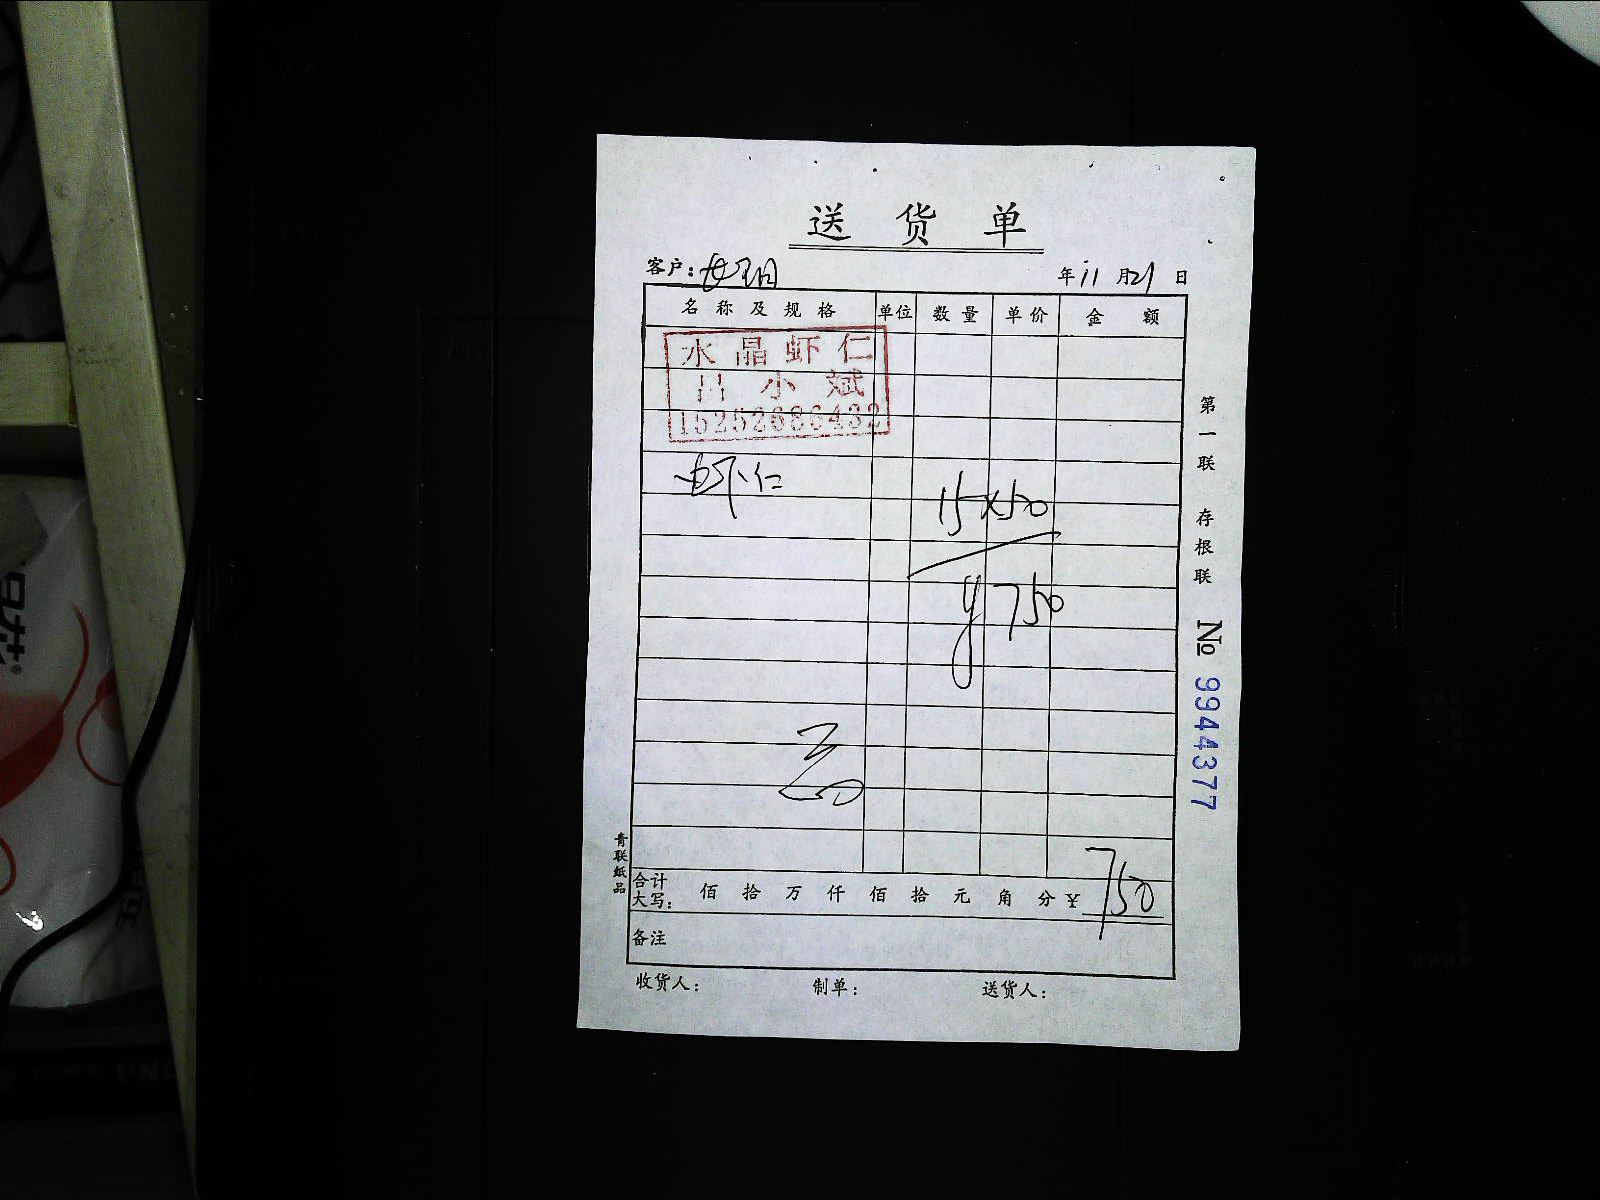 送货单
客户：
年 11 月 21 日
名称及规格 单位 数量 单价 金额
水晶虾仁
吕小斌
15252686432
虾仁 15×50
¥750
合计大写： 佰 拾 万 仟 佰 拾 元 角 分 ¥ 750
备注
收货人： 制单： 送货人：
第一联 存根联
№ 9944377
青联纸品